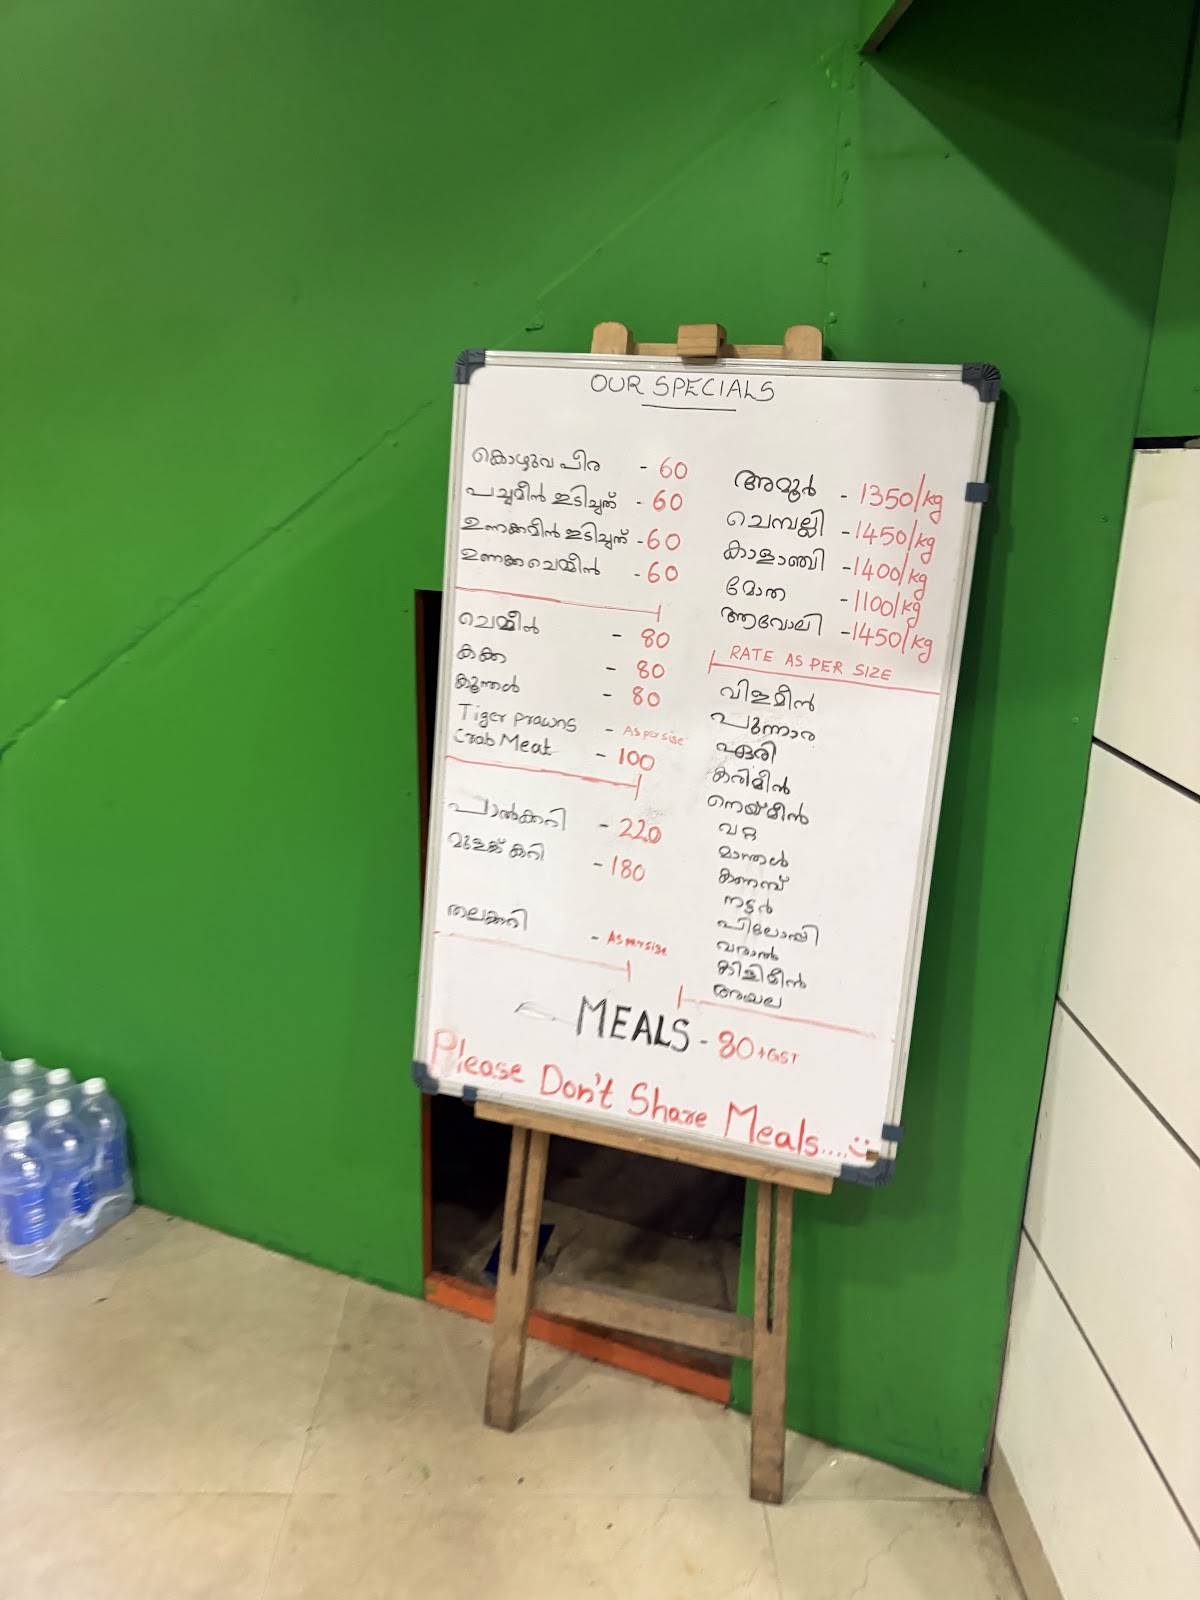 OUR SPECIALS
കൊഴുവ പീര - 60
പച്ചമീൻ ഇടിച്ചത് - 60
ഉണക്കമീൻ ഇടിച്ചത് - 60
ഉണക്ക ചെമ്മീൻ - 60
ചെമ്മീൻ - 80
കക്ക - 80
കൂന്തൽ - 80
Tiger prawns - As per size
Crab Meat - 100
പാൽക്കറി - 220
മുളക് കറി - 180
തലക്കറി - As per size
അമൂർ - 1350/kg
ചെമ്പല്ലി - 1450/kg
കാളാഞ്ചി - 1400/kg
മോത - 1100/kg
ആവോലി - 1450/kg
RATE AS PER SIZE
വിളമീൻ
പുന്നാര
ഏരി
കരിമീൻ
നെയ്മീൻ
വറ്റ
മാന്തൾ
കണമ്പ്
നട്ടർ
പിലോപ്പി
വരാൽ
കിളിമീൻ
അയല
MEALS - 80 + GST
Please Don't Share Meals....